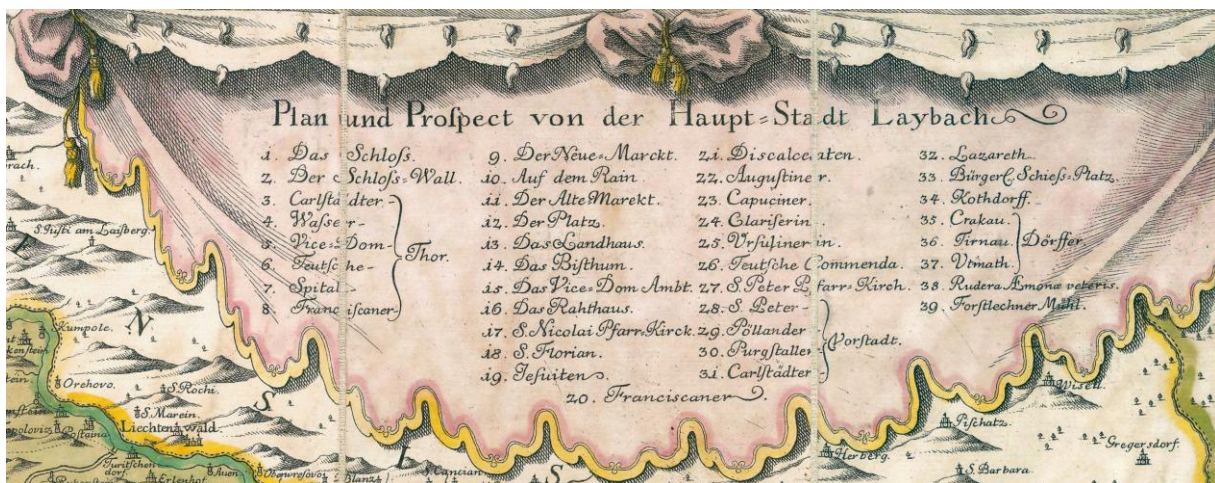 Plan und Proſpect von der Haupt=Stadt Laybach
1. Das Schloſs.
2. Der Schloſs=Wall.
3. Carlſtädter-
4. Waſser-
5. Vice=Dom-
6. Teutſche-
7. Spital-
8. Franciſcaner-
Thor.
9. Der Neue=Marckt.
10. Auf dem Rain
11. Der Alte Marckt.
12. Der Platz.
13. Das Landhaus.
14. Das Biſthum.
15. Das Vice=Dom Ambt.
16. Das Rahthaus.
17. S. Nicolai Pfarr=Kirck.
18. S. Florian.
19. Jeſuiten.
20. Franciſcaner
21. Diſcalceaten.
22. Auguſtiner.
23. Capuciner.
24. Clariſerin
25. Vrſulinerin.
26. Teutſche Commenda.
27. S. Peter Pfarr=Kirch.
28. S. Peter-
29. Pöllander-
30. Purgſtaller-
31. Carlſtädter-
Vorſtadt.
32. Lazareth.
33. Bürgerl. Schieſs=Platz.
34. Kothdorff.
35. Crakau.
36. Tirnau.
37. Vtmath.
Dörffer
38. Rudera Æmonæ veteris.
39. Forſtlechner Mühl.
S. Juſti am Laiſberg.
Kumpole.
Orehovo.
S. Rochi.
S. Marein.
Liechtenwald.
Turitſchen
dorf.
Auen
Erlenhof.
S. Cancian
N
S
I
S
Wiſell.
Piſchatz.
Gregersdorf.
Herberg.
S. Barbara.